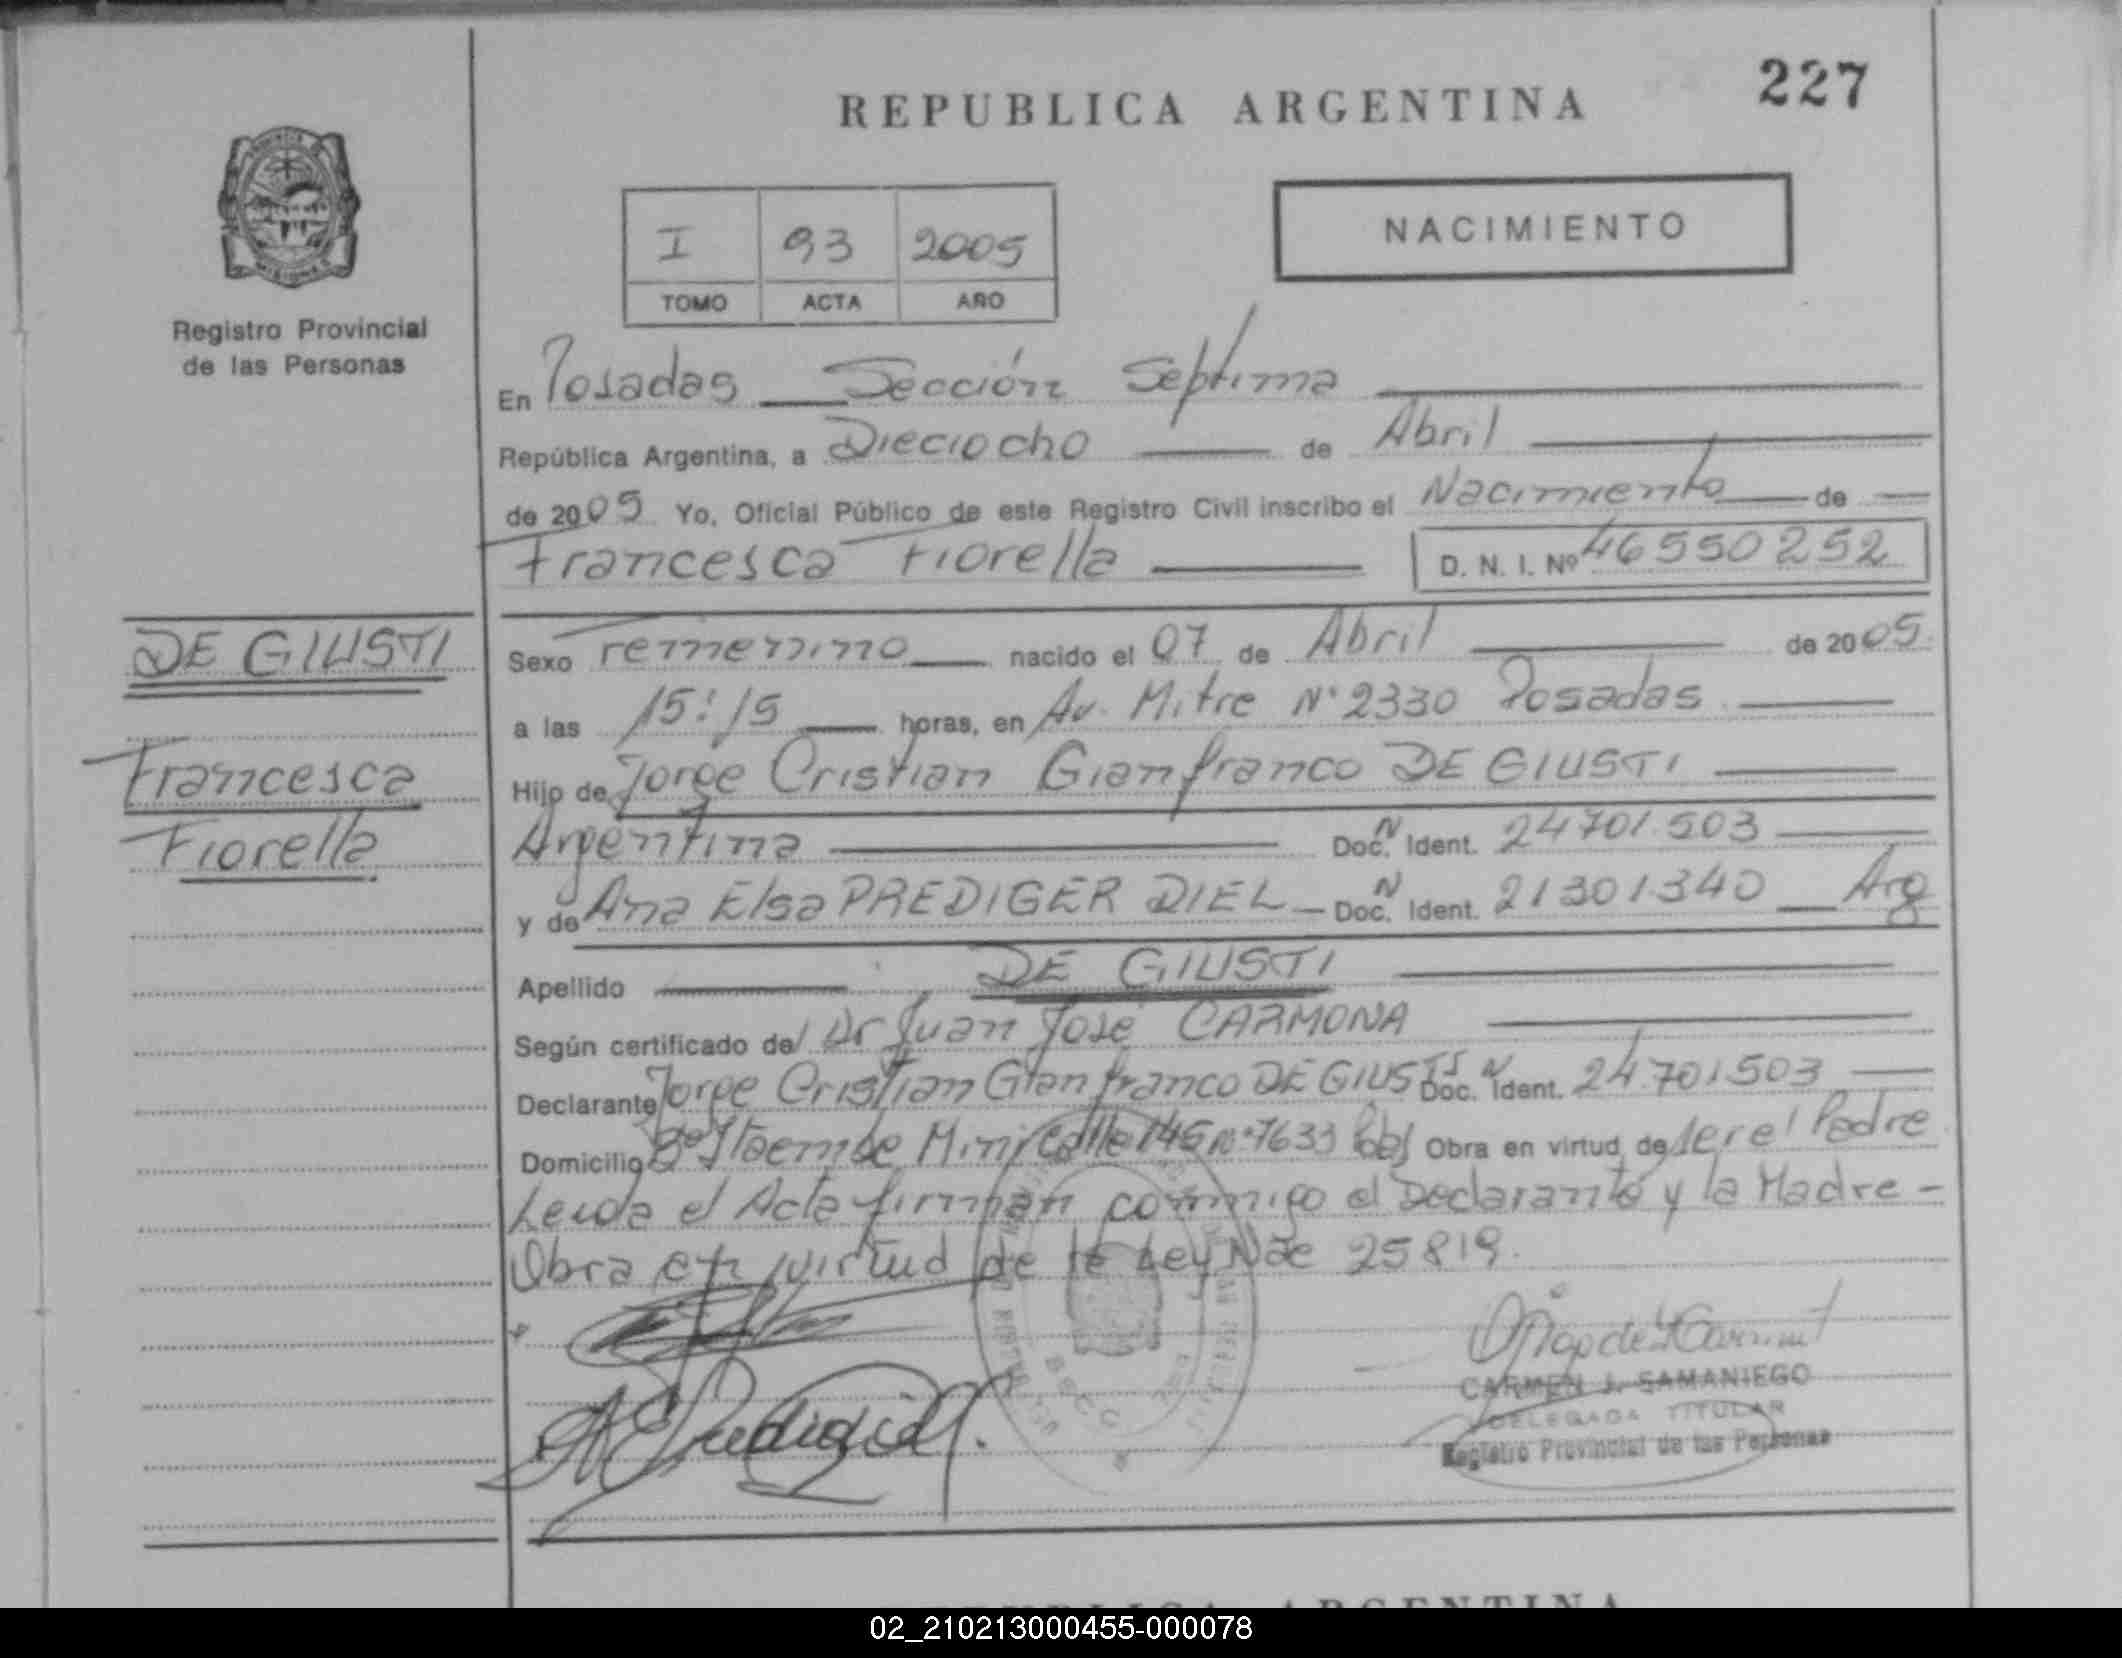 REPUBLICA ARGENTINA
227
NACIMIENTO
I 93 2005
TOMO ACTA AÑO
Registro Provincial
de las Personas
En Posadas Sección Septima
República Argentina, a Dieciocho de Abril
de 2005 Yo, Oficial Público de este Registro Civil inscribo el Nacimiento de
Francesca Fiorella D. N. I. Nº 46550252
DE GIUSTI
Francesca
Fiorella
Sexo Femenino nacido el 07 de Abril de 2005
a las 15:15 horas, en Av. Mitre Nº 2330 Posadas
Hijo de Jorge Cristian Gianfranco DE GIUSTI
Argentina Doc. N Ident. 24701.503
y de Ana Elsa PREDIGER DIEL Doc. N Ident. 21301340 Arg
Apellido DE GIUSTI
Según certificado del Dr Juan José CARMONA
Declarante Jorge Cristian Gianfranco DE GIUSTI Doc. N Ident. 24.701503
Domicilio Bº Itaembe Mini Calle 145 nº 7633 Obra en virtud de ser el Padre
Leida el Acta firman conmigo el Declarante y la Madre -
Obra en virtud de la Ley 25819.
CARMEN J. SAMANIEGO
DELEGADA TITULAR
Registro Provincial de las Personas
REPUBLICA ARGENTINA
02_210213000455-000078